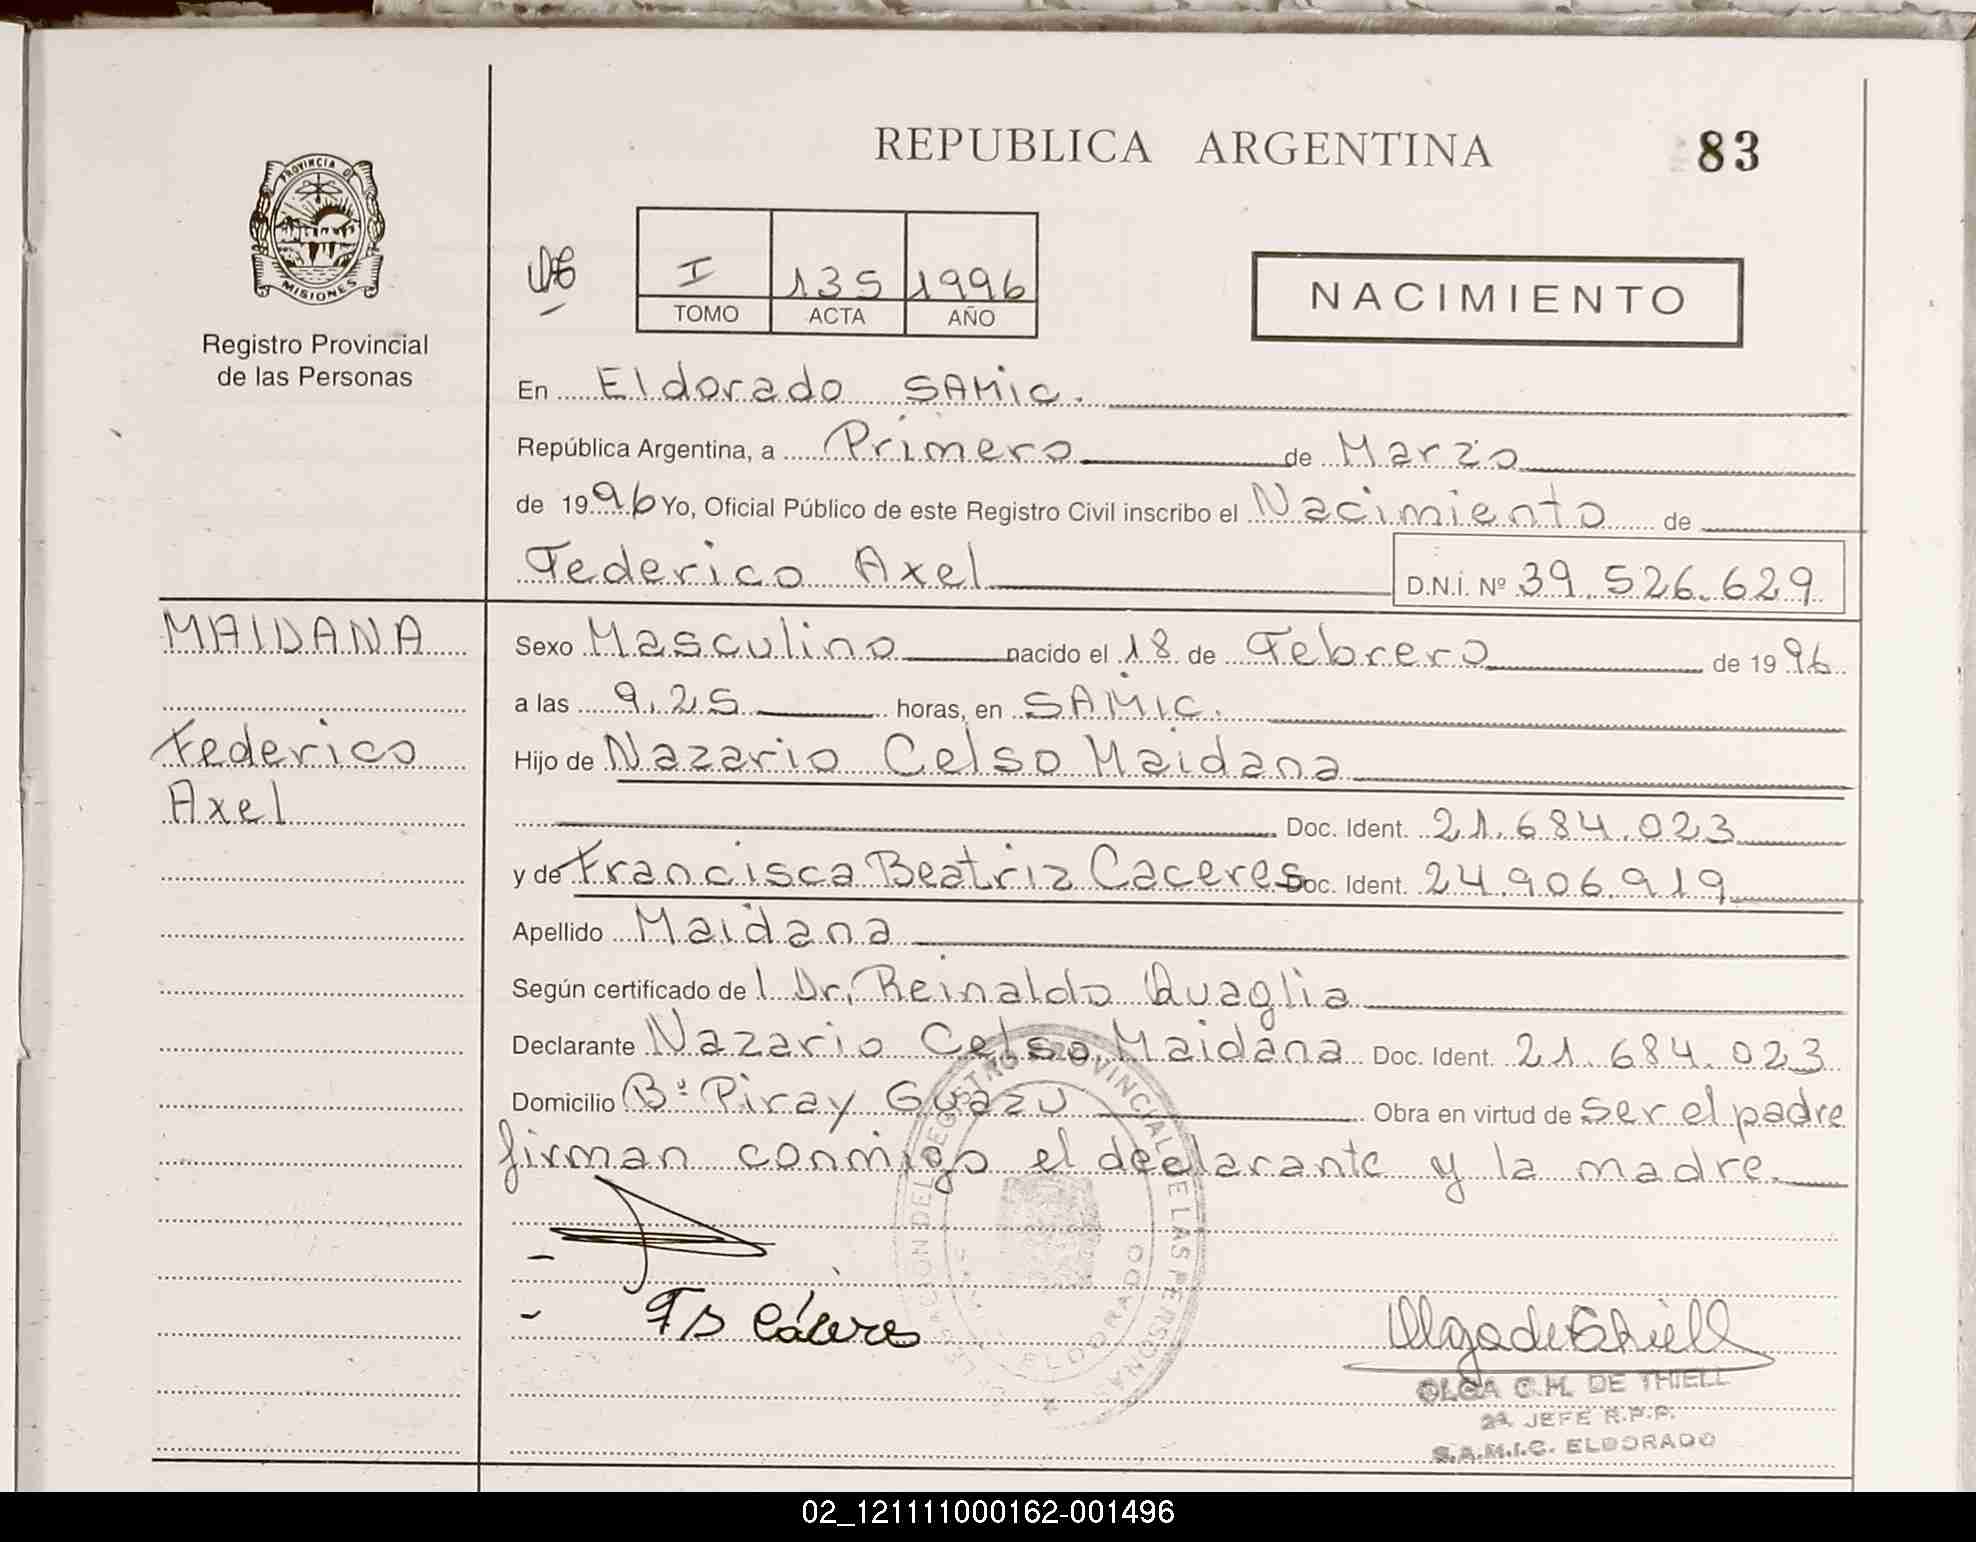 REPUBLICA ARGENTINA
83
PROVINCIA DE
MISIONES
Registro Provincial
de las Personas
I 135 1996
TOMO ACTA AÑO
NACIMIENTO
En Eldorado SAMIC.
República Argentina, a Primero de Marzo
de 1996 Yo, Oficial Público de este Registro Civil inscribo el Nacimiento de
Federico Axel D.N.I. Nº 39.526.629
MAIDANA
Federico
Axel
Sexo Masculino nacido el 18 de Febrero de 1996
a las 9.25 horas, en SAMIC.
Hijo de Nazario Celso Maidana
Doc. Ident. 21.684.023
y de Francisca Beatriz Caceres Doc. Ident. 24.906.919
Apellido Maidana
Según certificado del Dr. Reinaldo Quaglia
Declarante Nazario Celso Maidana Doc. Ident. 21.684.023
Domicilio Bº Piray Guazu Obra en virtud de ser el padre
firman conmigo el declarante y la madre.
REGISTRO PROVINCIAL DE LAS PERSONAS
ELDORADO
FB Cáceres
Olga de Thiell
OLGA C.H. DE THIELL
2ª JEFE R.P.P.
S.A.M.I.C. ELDORADO
02_121111000162-001496